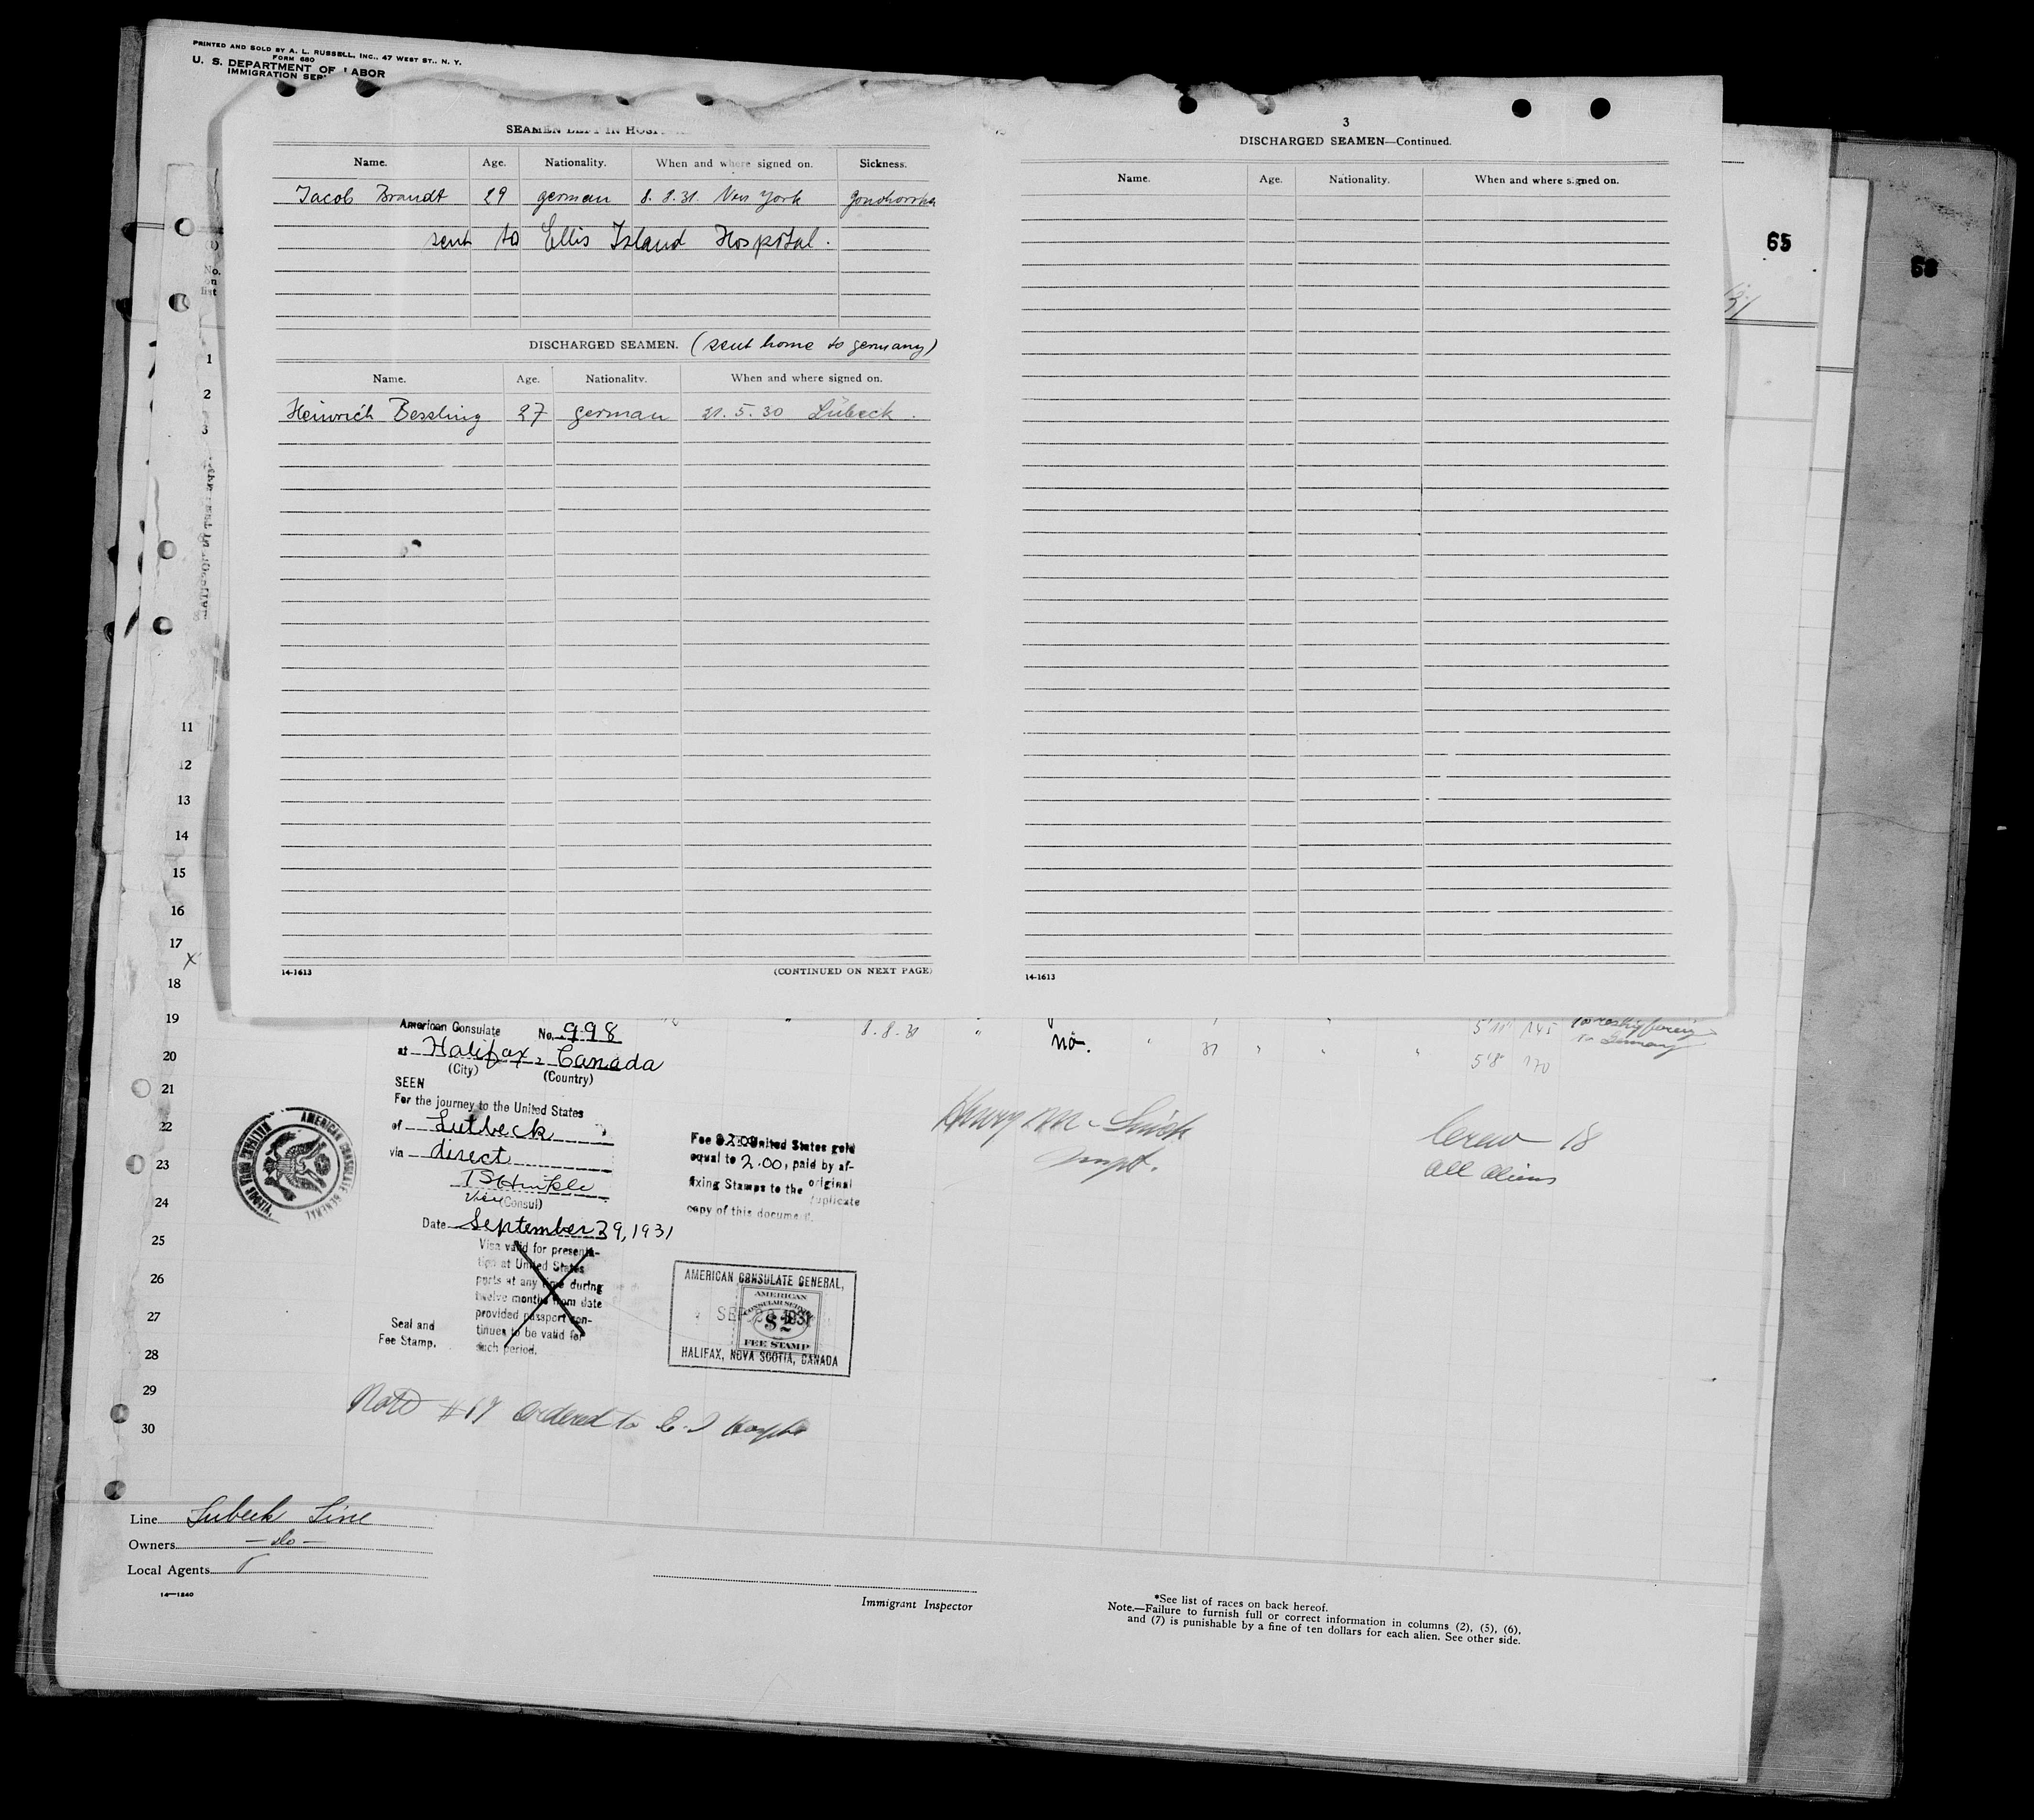 PRINTED AND SOLD BY A. L. RUSSELL, INC., 47 WEST ST., N. Y.
FORM 680
U. S. DEPARTMENT OF LABOR
IMMIGRATION SER
SEAMEN LEFT IN HOSP
Name. Age. Nationality. When and where signed on. Sickness.
Jacob Brandt 29 german 8. 8. 31. New York gonohorrhea
sent to Ellis Island Hospital.
DISCHARGED SEAMEN. (sent home to germany)
Name. Age. Nationality. When and where signed on.
Heinrich Bessling 27 german 21. 5. 30 Lübeck.
14-1613 (CONTINUED ON NEXT PAGE)
3
DISCHARGED SEAMEN—Continued.
Name. Age. Nationality. When and where signed on.
14-1613
65
68
31
No.
on
list
1
2
3
11
12
13
14
15
16
17
X
18
19
20
21
22
23
24
25
26
27
28
29
30
8-8-31 " 5'11" 145
no. " 31 " " " 5'8 170
to Germany
American Consulate No. 998
at Halifax, Canada
(City) (Country)
SEEN
For the journey to the United States
of Lutbeck
via direct
Vice (Consul)
Date September 29, 1931
Visa valid for presenta-
tion at United States
ports at any time during
twelve months from date
provided passport con-
tinues to be valid for
such period.
Seal and
Fee Stamp.
AMERICAN CONSULATE GENERAL
HALIFAX, NOVA SCOTIA
Fee $2.00 United States gold
equal to 2.00, paid by af-
fixing Stamps to the original
duplicate
copy of this document.
AMERICAN CONSULATE GENERAL,
SEP 29 1931
AMERICAN
CONSULAR SERVICE
$2
FEE STAMP
HALIFAX, NOVA SCOTIA, CANADA
Henry
Insp't.
Crew 18
all aliens
Note #17 ordered to E. I
Line Lubeck Line
Owners — do —
Local Agents
14—1240
Immigrant Inspector
*See list of races on back hereof.
Note.—Failure to furnish full or correct information in columns (2), (5), (6),
and (7) is punishable by a fine of ten dollars for each alien. See other side.